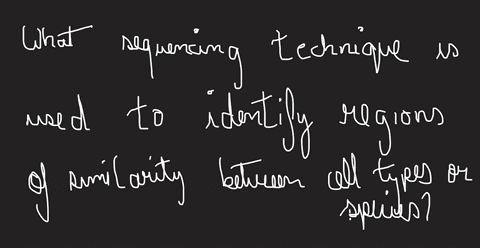 What sequencing technique is
used to identify regions
of similarity between cell types or
species?